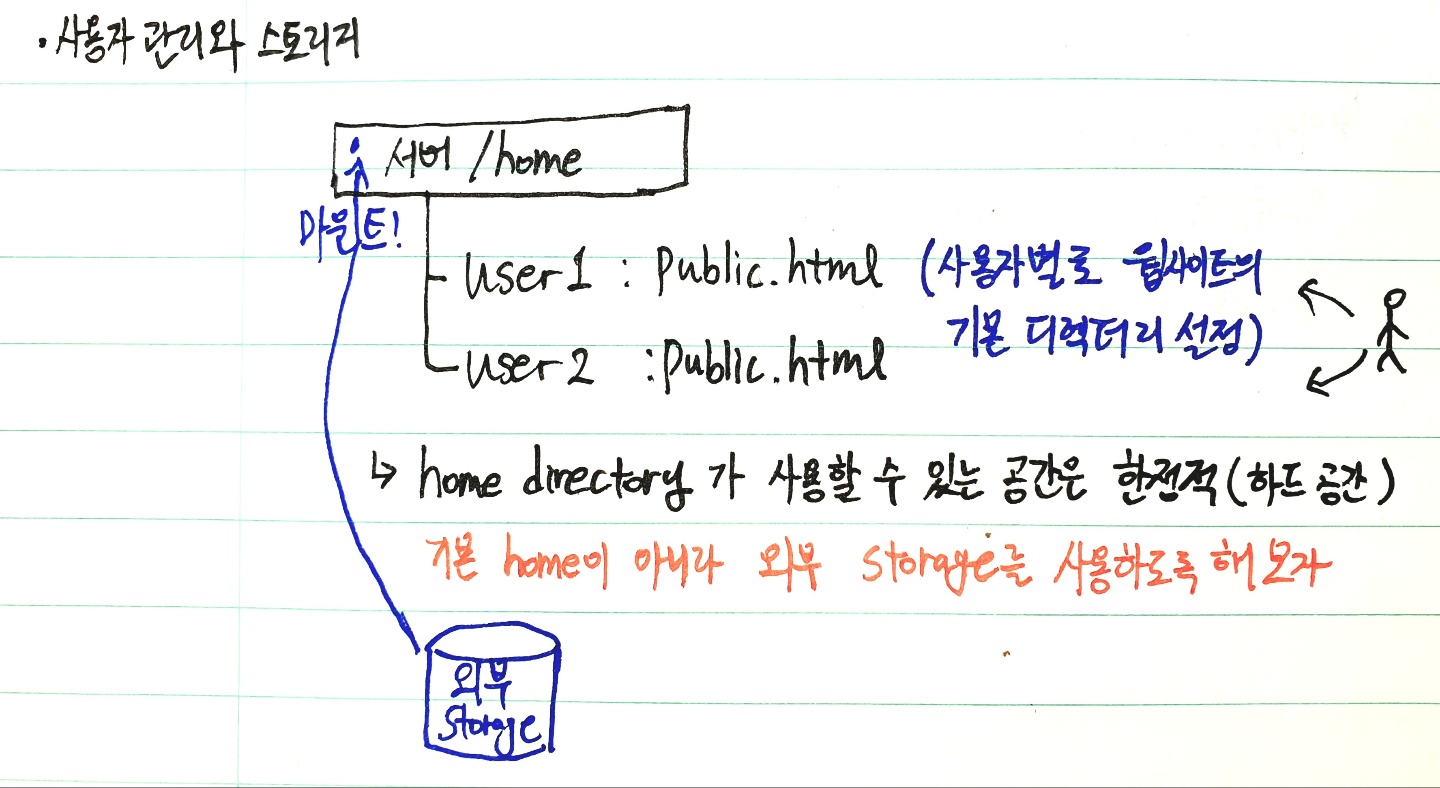 · 사용자 관리와 스토리지
서버 /home
마운트!
user1 : public.html (사용자별로 웹사이트의
기본 디렉터리 설정)
user2 : public.html
↳ home directory가 사용할 수 있는 공간은 한정적 (하드 공간)
기본 home이 아니라 외부 storage를 사용하도록 해보자
외부
storage